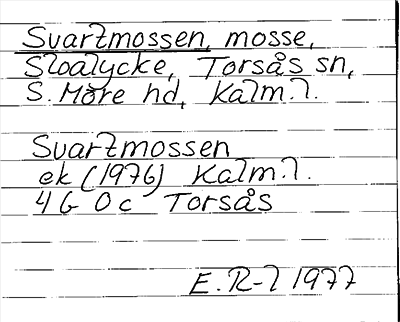 Svartmossen, mosse,
Sloalycke, Torsås sn,
S. Möre hd, Kalm. l.
Svartmossen
ek (1976) Kalm. l.
4 G 0 c Torsås
E. R-l 1977